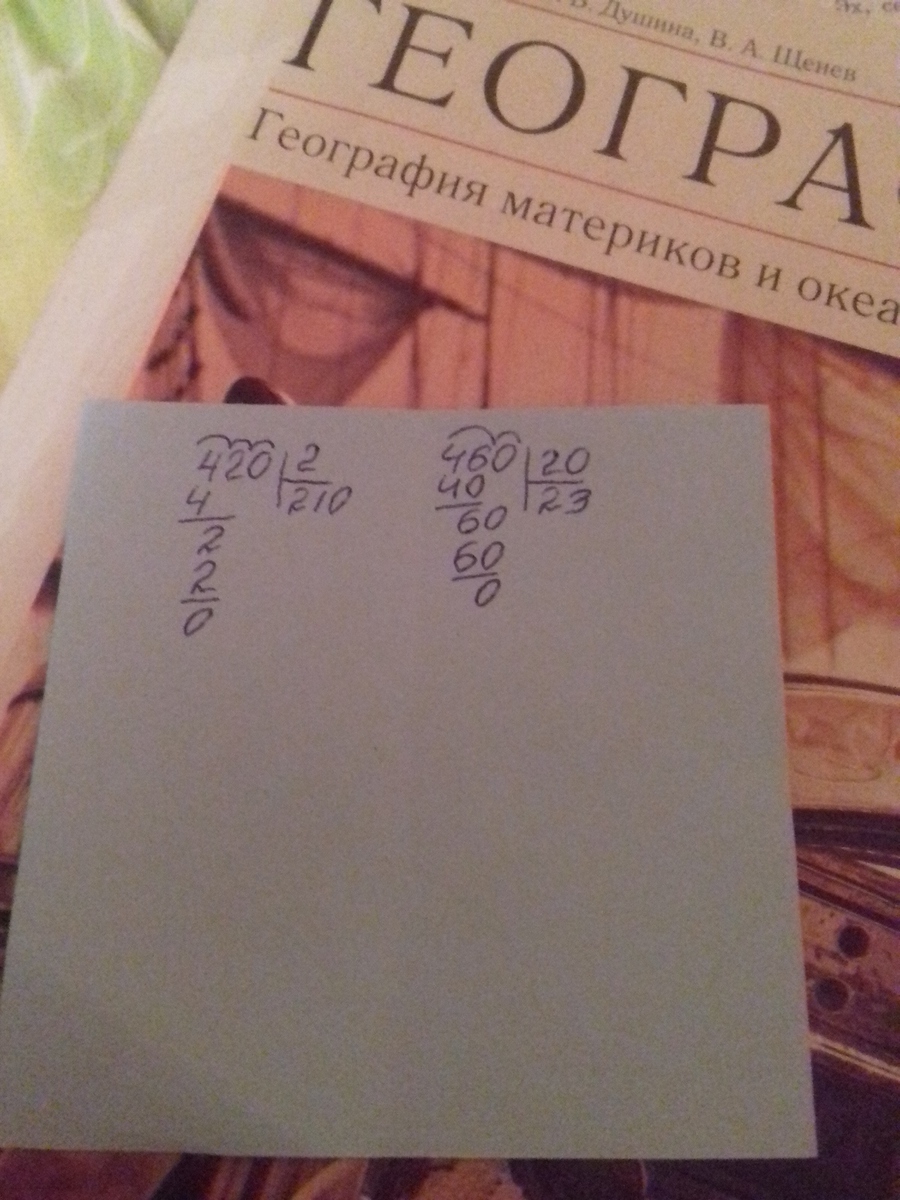 В. Душина, В. А. Щенев
ГЕОГРА
География материков и океа
420 | 2
4 210
2
2
0
460 | 20
40 23
60
60
0